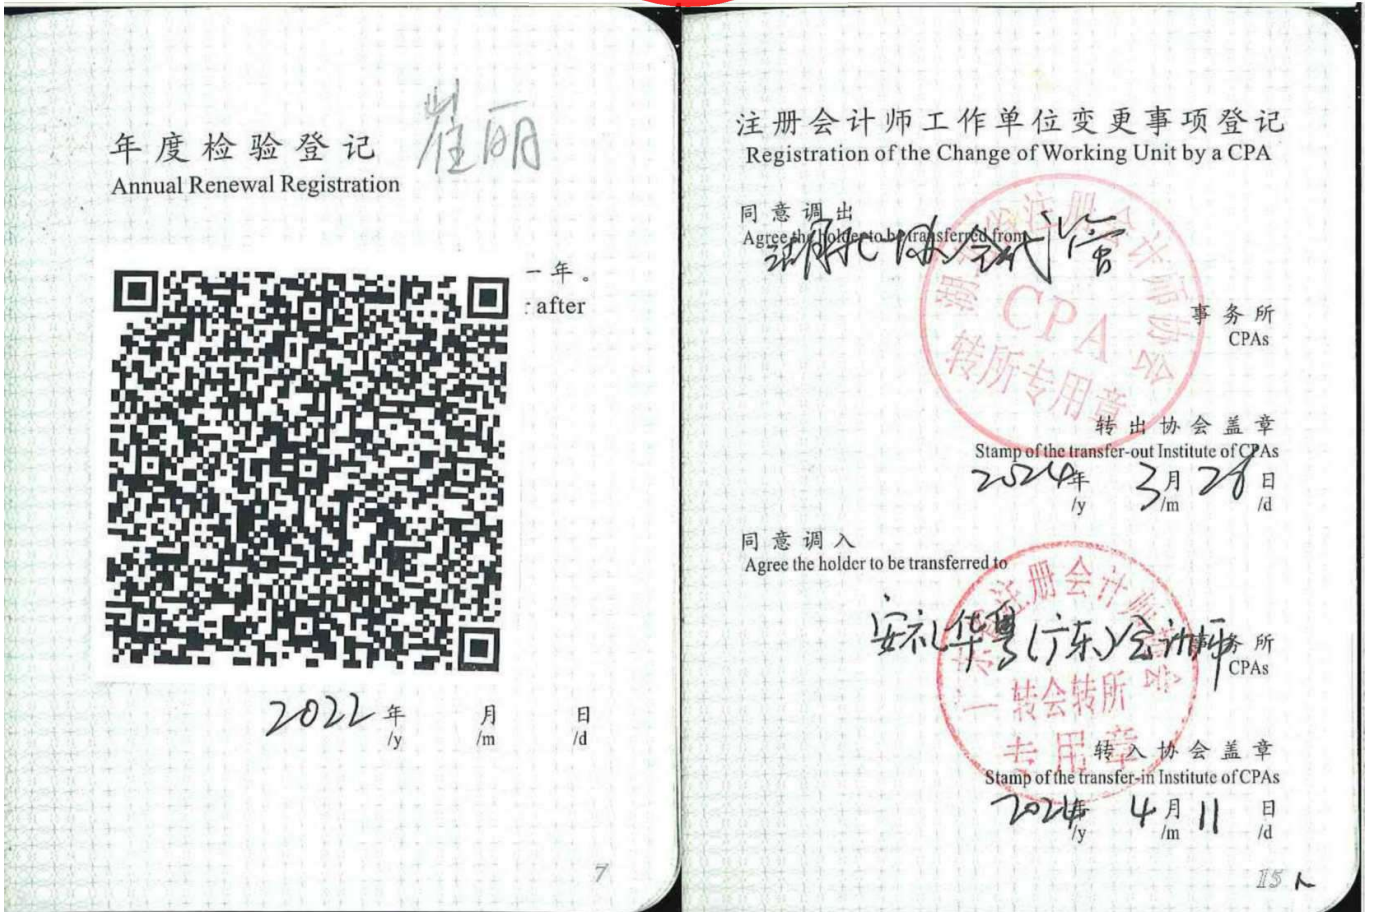 年度检验登记
崔丽
Annual Renewal Registration
一年。
after
2022年 月 日
/y /m /d
7
注册会计师工作单位变更事项登记
Registration of the Change of Working Unit by a CPA
同意调出
Agree the holder to be transferred from
事务所
CPAs
注册会计师协会
CPA
转所专用章
转出协会盖章
Stamp of the transfer-out Institute of CPAs
2024年 3月 28日
/y /m /d
同意调入
Agree the holder to be transferred to
安礼华粤(广东)会计师事务所
CPAs
注册会计师协会
转会转所
专用章
转入协会盖章
Stamp of the transfer-in Institute of CPAs
2024年 4月 11日
/y /m /d
15